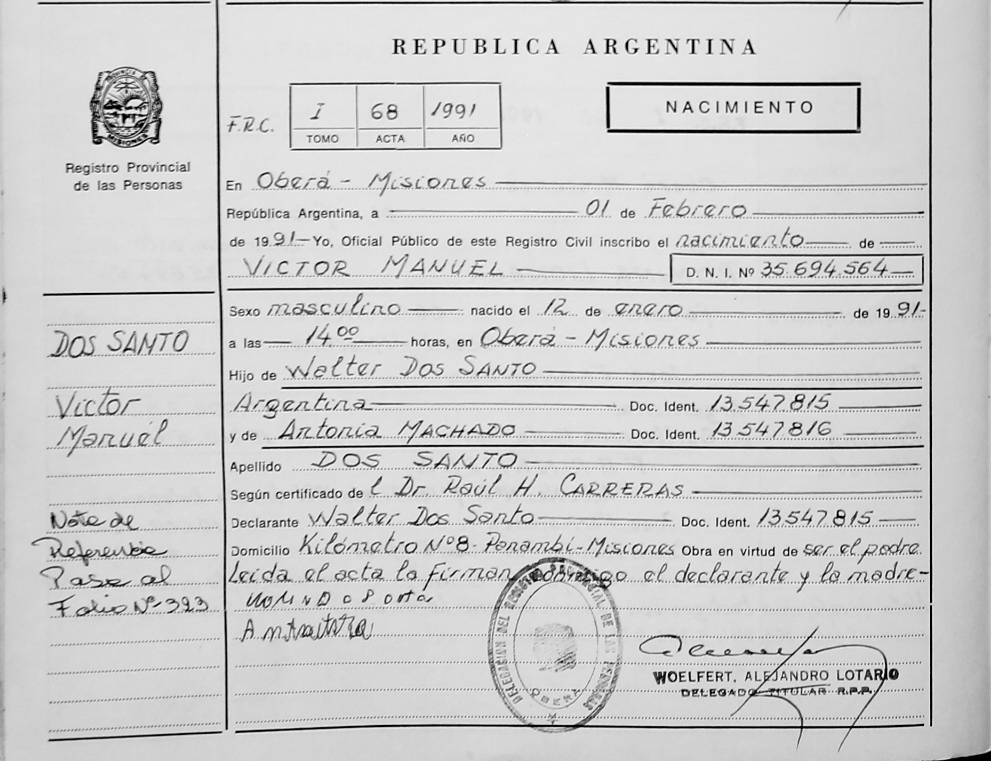 REPUBLICA ARGENTINA
F.R.C.
I 68 1991
TOMO ACTA AÑO
NACIMIENTO
PROVINCIA DE MISIONES
Registro Provincial
de las Personas
En Oberá - Misiones
República Argentina, a 01 de Febrero
de 1991 - Yo, Oficial Público de este Registro Civil inscribo el nacimiento de
VICTOR MANUEL D. N. I. Nº 35.694.564
Sexo masculino nacido el 12 de enero de 1991-
a las 14⁰⁰ horas, en Oberá - Misiones
Hijo de Walter Dos SANTO
Argentina Doc. Ident. 13.547.815
y de Antonia MACHADO Doc. Ident. 13.547.816
Apellido DOS SANTO
Según certificado de l Dr. Raúl H. CARRERAS
Declarante Walter Dos Santo Doc. Ident. 13.547.815
Domicilio Kilómetro Nº8- Panambi-Misiones Obra en virtud de ser el padre.
Leida el acta la Firman conmigo el declarante y la madre-
DOS SANTO
Victor
Manuel
Nota de
Referencia
Pasa al
Folio Nº-323
DELEGACION DEL REGISTRO PROVINCIAL DE LAS PERSONAS
OBERA
WOELFERT, ALEJANDRO LOTARIO
DELEGADO TITULAR R.P.P.